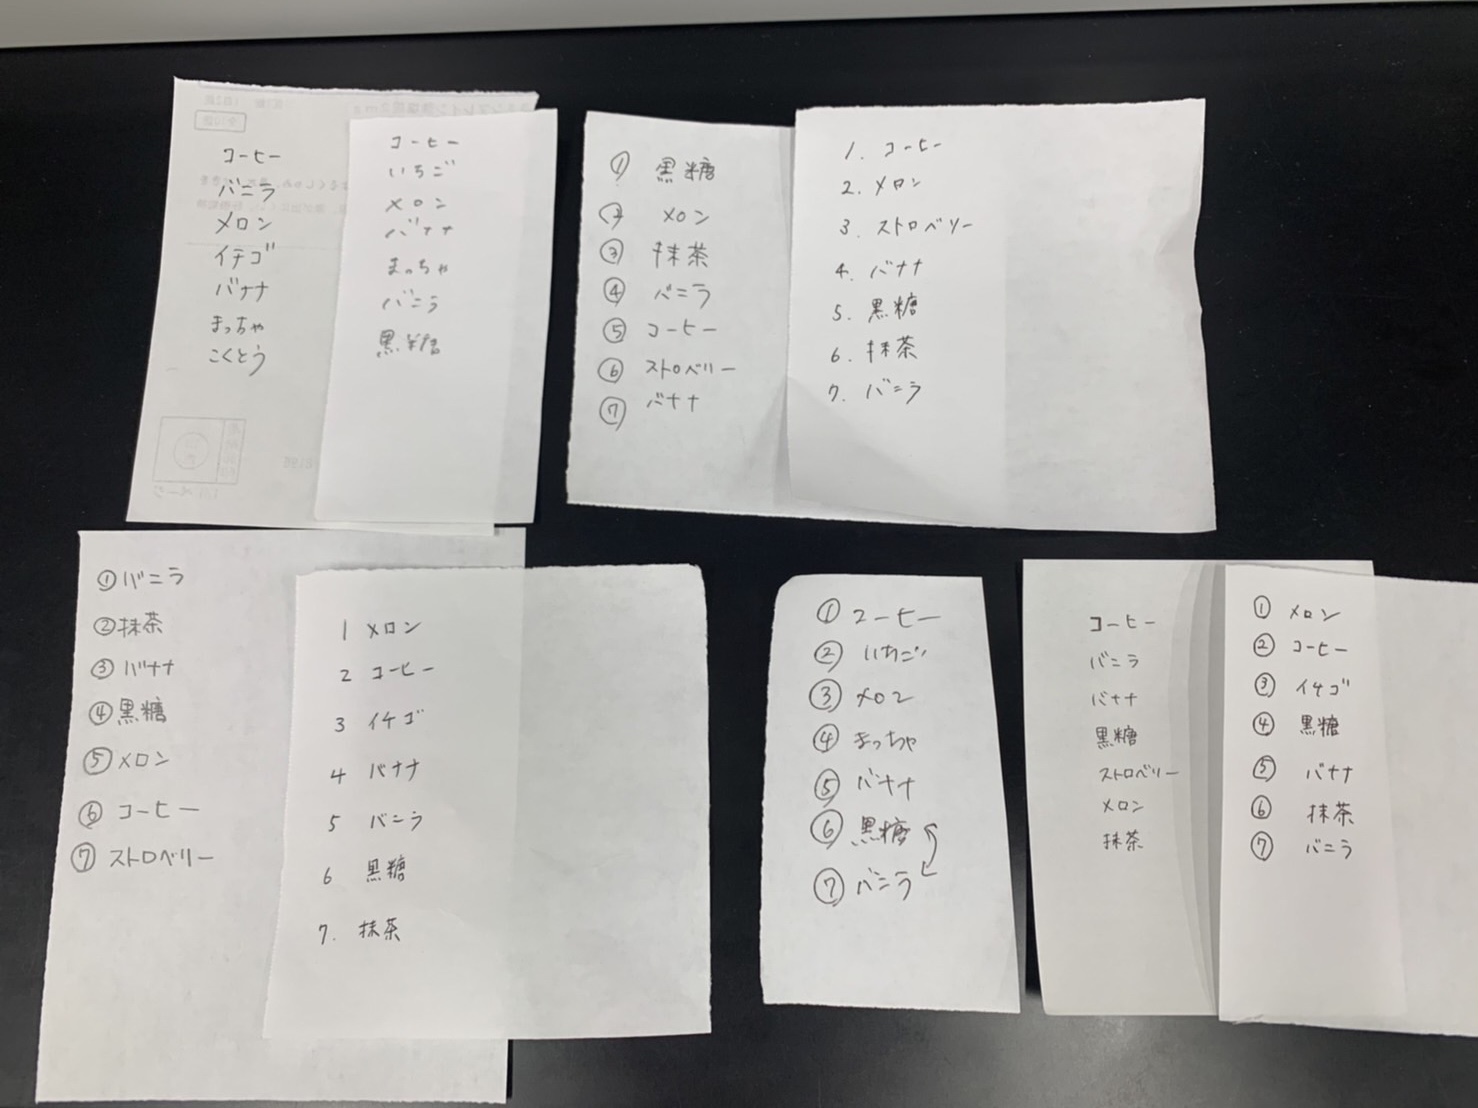 コーヒー
バニラ
メロン
イチゴ
バナナ
まっちゃ
こくとう
コーヒー
いちご
メロン
バナナ
まっちゃ
バニラ
黒糖
① 黒糖
② メロン
③ 抹茶
④ バニラ
⑤ コーヒー
⑥ ストロベリー
⑦ バナナ
1. コーヒー
2. メロン
3. ストロベリー
4. バナナ
5. 黒糖
6. 抹茶
7. バニラ
① バニラ
② 抹茶
③ バナナ
④ 黒糖
⑤ メロン
⑥ コーヒー
⑦ ストロベリー
1 メロン
2 コーヒー
3 イチゴ
4 バナナ
5 バニラ
6 黒糖
7. 抹茶
① コーヒー
② いちご
③ メロン
④ まっちゃ
⑤ バナナ
⑥ 黒糖
⑦ バニラ
コーヒー
バニラ
バナナ
黒糖
ストロベリー
メロン
抹茶
① メロン
② コーヒー
③ イチゴ
④ 黒糖
⑤ バナナ
⑥ 抹茶
⑦ バニラ